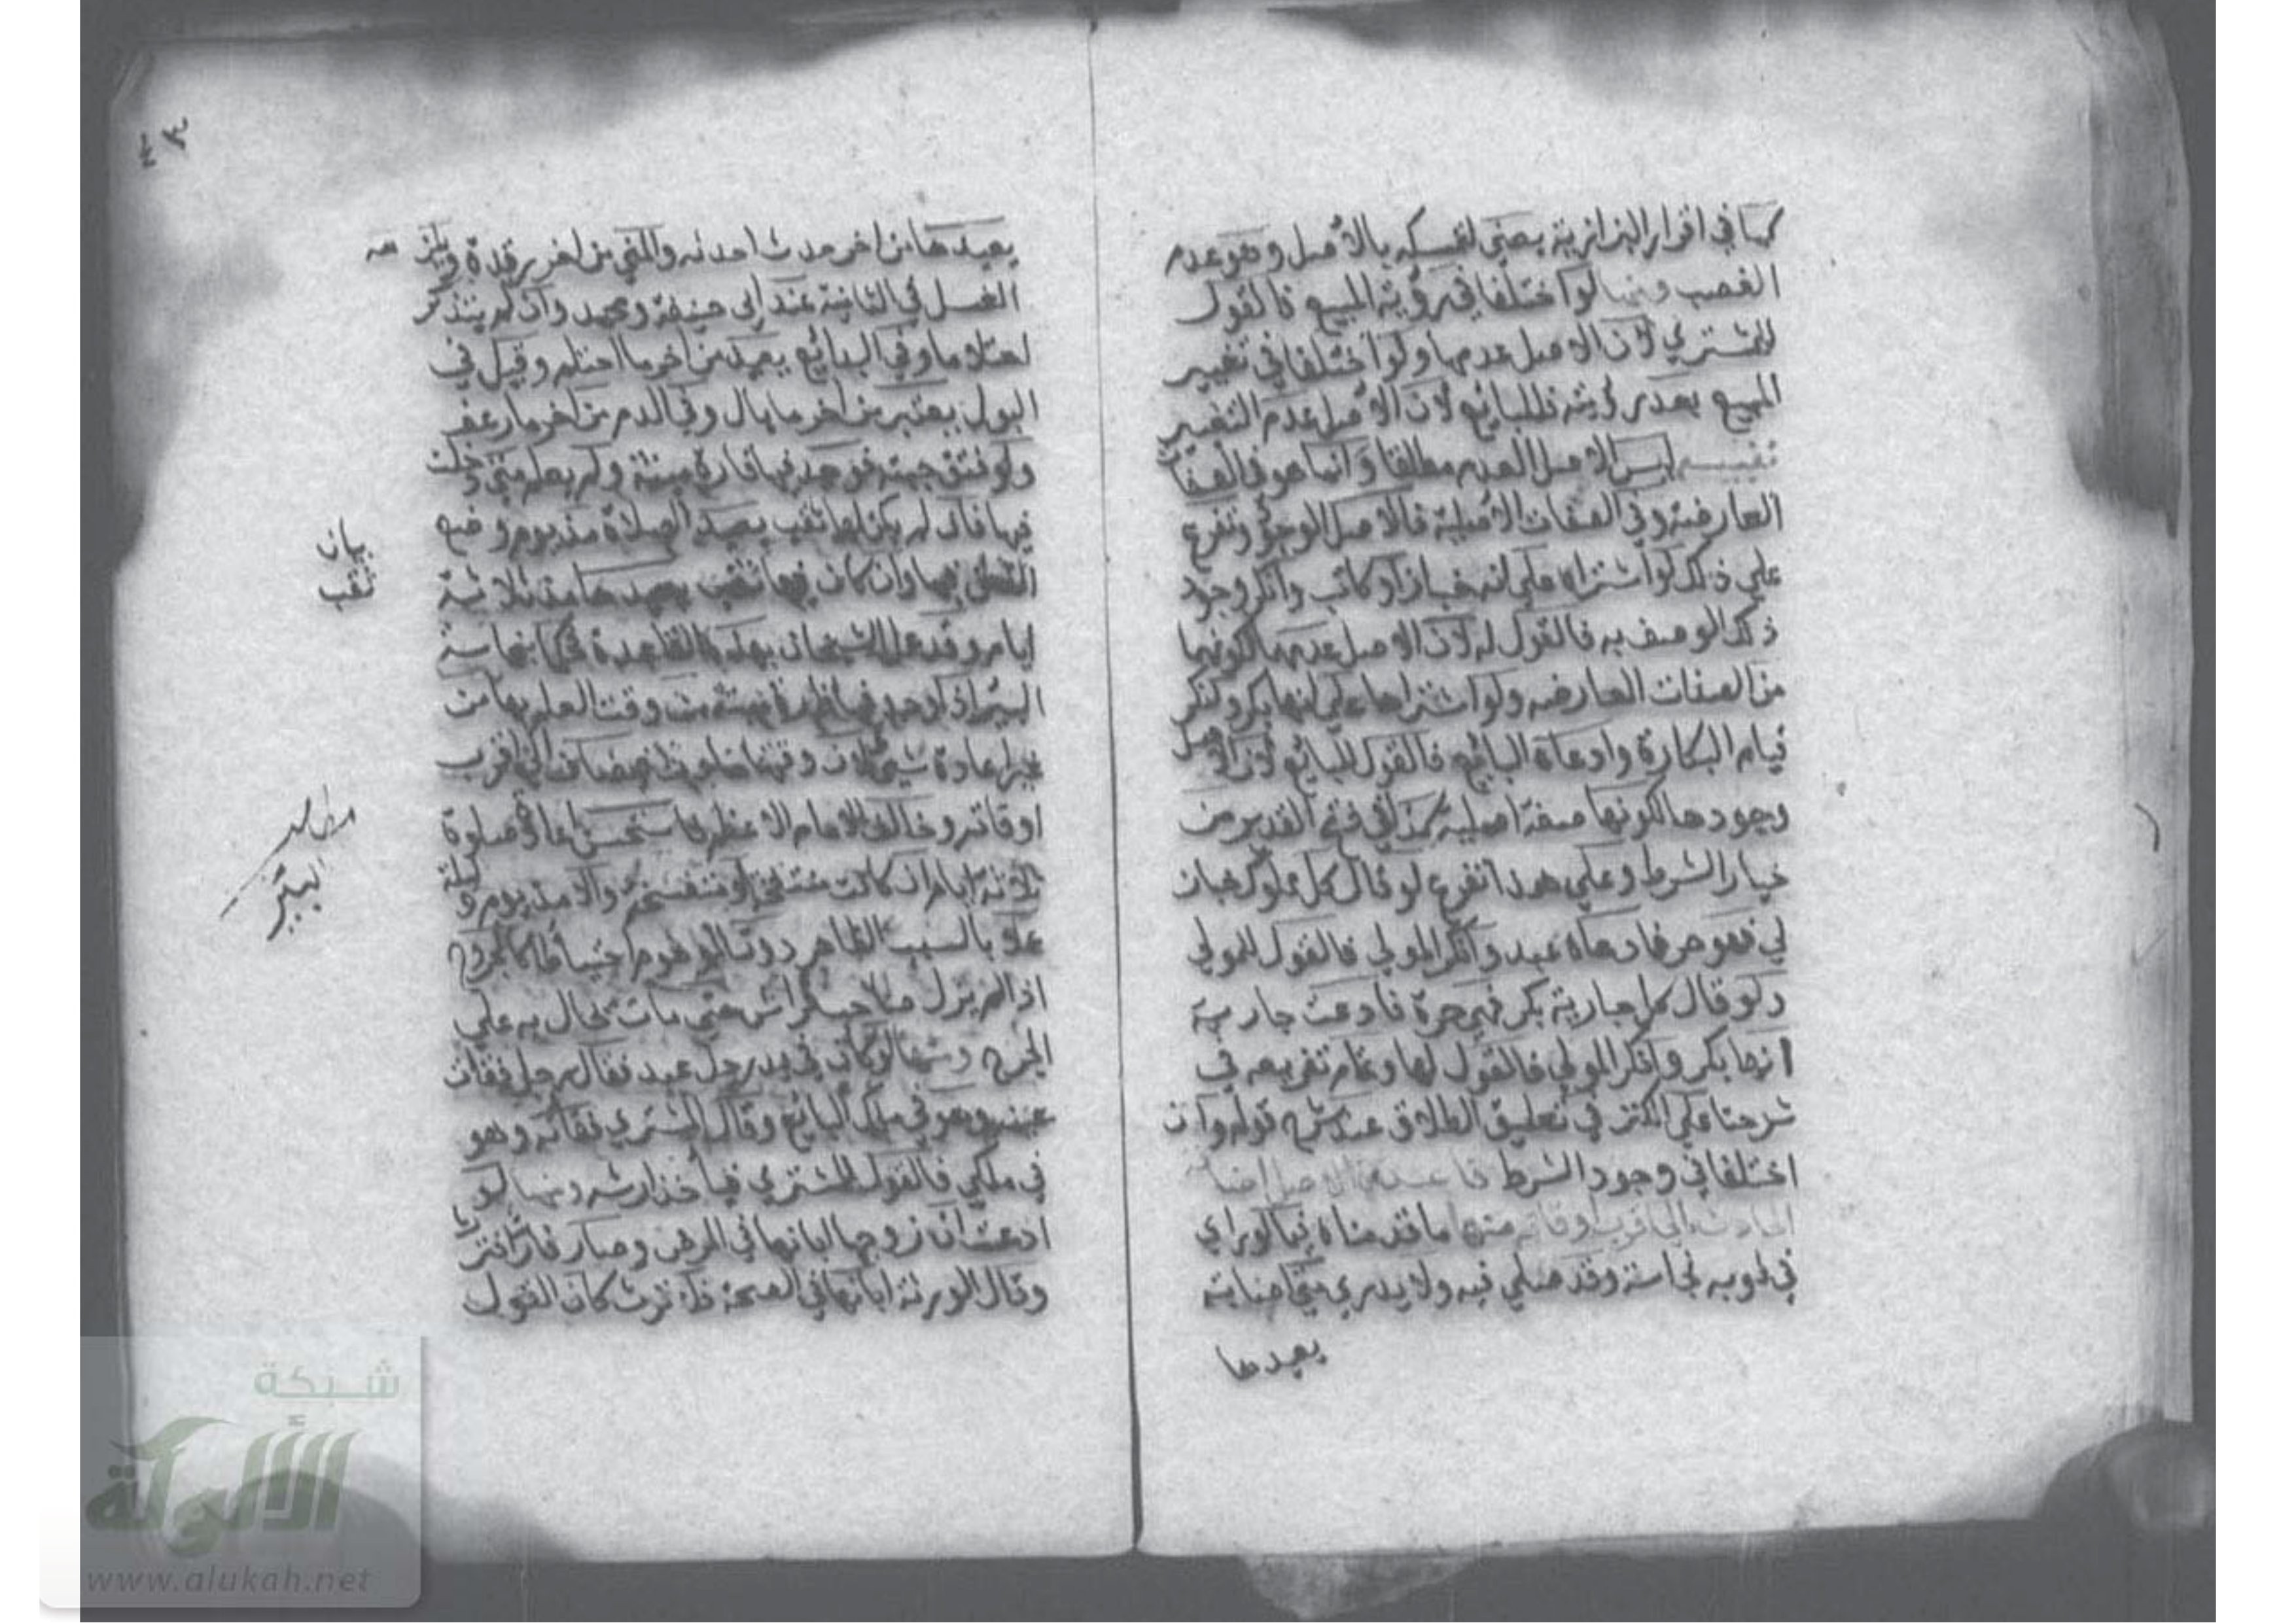 كما في اقرار البزازية يعني لتمسكه بالأصل وهو عدم
الغصب ومنها لو اختلفا في رؤية المبيع فالقول
للمشتري لان الاصل عدمها ولو اختلفا في تغيير
المبيع بعد رؤيته فللبائع لان الأصل عدم التغيير
تنبيه ليس الاصل العدم مطلقا وانما هو في الصفات
العارضة وفي الصفات الاصلية فالاصل الوجود وتفرع
علي ذلك لو اشتراه علي انه خباز او كاتب وانكر وجود
ذلك الوصف به فالقول له لان الاصل عدمهما لكونهما
من الصفات العارضه ولو اشتراها علي انها بكر وانكر
قيام البكارة وادعاه البائع فالقول للبائع لان الاصل
وجودها لكونها صفة اصلية كذا في فتح القدير من
خيار الشرط وعلي هذا تفرع لو قال كل مملوك خباز
لي فهو حر فادعاه عبد وانكر المولي فالقول للمولي
ولو قال كل جارية بكر فهي حرة فادعت جارية
انها بكر وانكر المولي فالقول لها وتمام تفريعه في
شرحنا علي الكنز في تعليق الطلاق عند شرح قوله وان
اختلفا في وجود الشرط قاعدة الاصل اضافة
الحادث الي اقرب اوقاته منها ما قدمناه فيما لو راي
في ثوبه نجاسة وقد صلي فيه ولا يدري متي اصابته
يعيدها
٤٣
يعيدها من اخر حدث احدثه والمني من اخر رقدة ويلزمه
الغسل في الثانية عند ابي حنيفة ومحمد وان لم يتذكر
احتلاما وفي البدائع يعيد من اخر ما احتلم وقيل في
البول يعتبر من اخر ما بال وفي الدم من اخر ما رعف
ولو فتق جبته فوجد فيها فارة ميتة ولم يعلم متي دخلت
فيها فان لم يكن لها ثقب يعيد الصلاة مذ يوم وضع
القطن فيها وان كان فيها ثقب يعيدها مذ ثلاثة
ايام وقد عمل الشيخان بهذه القاعدة فحكما بنجاسة
البئر اذا وجد فيها فارة ميتة من وقت العلم بها من
غير اعادة شيء لان وقوعها حادث فيضاف الي اقرب
اوقاته وخالف الامام الاعظم فاستحسن اعادة صلوة
ثلاثة ايام ان كانت منتفخة او متفسخة والا مذ يوم وليلة
عملا بالسبب الظاهر دون الموهوم احتياطا كالمجروح
اذا لم يزل صاحب فراش حتي مات يحال به علي
الجرح ومنها لو كان في يد رجل عبد فقال رجل فقات
عينه وهو في ملك البائع وقال المشتري فقاته وهو
في ملكي فالقول للمشتري فيأخذ ارشه ومنها لو
ادعت ان زوجها ابانها في المرض وصار فارا فترث
وقال الورثة ابانها في الصحة فلا ترث كان القول
بيان
ثقب
مطلب
البير
شبكة
الألوكة
www.alukah.net